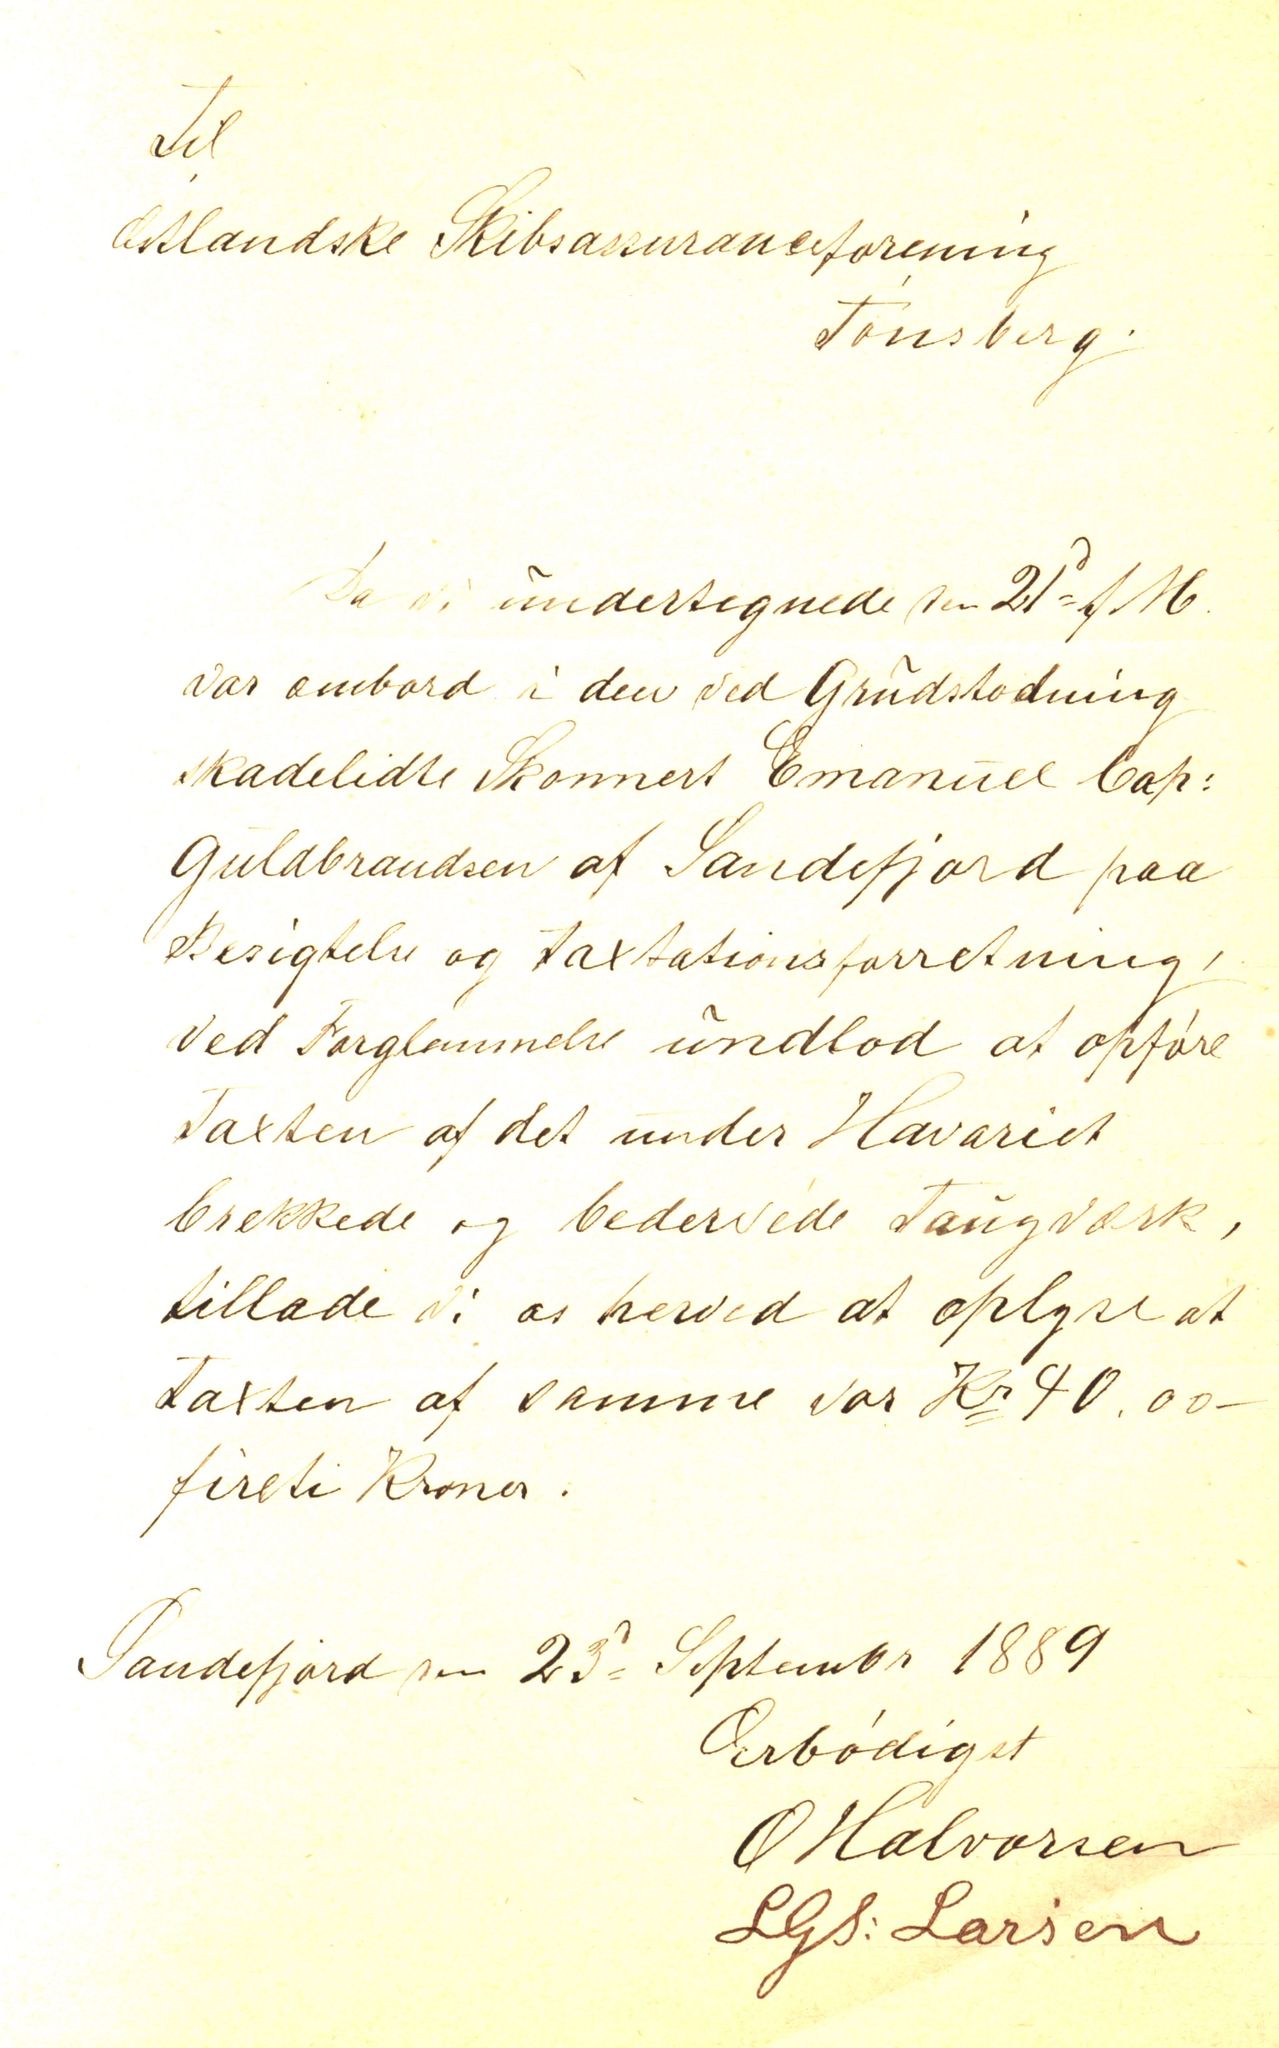 Til
Østlandske Skibsassuranceforening
Tönsberg.
Da vi undertegnede den 21d f. M.
var ombord i den ved Grudstodning
skadelidte Skonnert Emanuel Cap:
Guldbrandsen af Sandefjord paa
Besigtelse og Taxtationsforretning,
ved Forglemmelse undlod at opföre
Taxten af det under Havariet
brekkede og bedervede Taugværk,
tillade vi os herved at oplyse at
Taxten af samme var Kr 40.00-
fireti Kroner.
Sandefjord den 23d Septembr 1889
Ærbödigst
O Halvorsen
LGS: Larsen